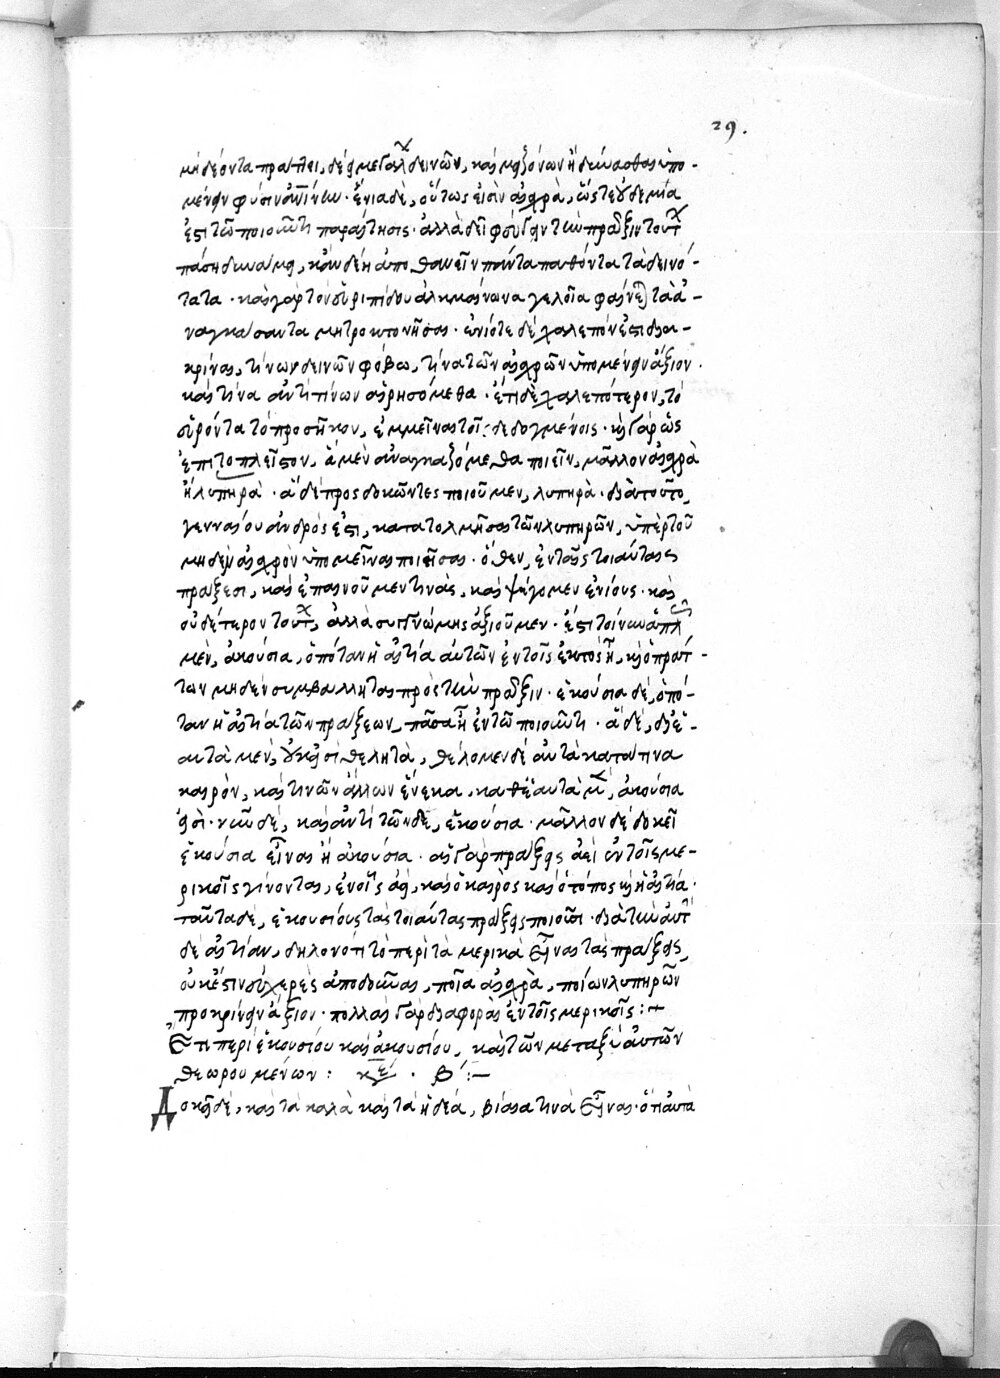 29.
μὴ δέοντα πράττει, δέει μεγάλων δεινῶν, καὶ μειζόνων ἢ δύνασθαι ὑπο-
μένειν φύσιν ἀνθρωπίνην· ἔνια δὲ, οὕτως εἰσὶν αἰσχρὰ, ὥστε οὐδεμία
ἐστὶ τῷ ποιοῦντι παραίτησις· ἀλλὰ δεῖ φεύγειν τὴν πρᾶξιν τούτων
πάσῃ δυνάμει, κἂν δέῃ ἀποθανεῖν πάντα παθόντα τὰ δεινό-
τατα· καὶ γὰρ τὸν εὐριπίδου ἀλκμαίωνα γελοῖα φαίνεται τὰ ἀ-
ναγκάσαντα μητροκτονῆσαι· ἐνίοτε δὲ χαλεπόν ἐστι δια-
κρίναι, τίνων δεινῶν φόβω, τίνα τῶν αἰσχρῶν ὑπομένειν ἄξιον.
καὶ τίνα ἀντὶ τίνων αἱρησόμεθα· ἔτι δὲ χαλεπότερον, τὸ
εὑρόντα τὸ προσῆκον, ἐμμεῖναι τοῖς δεδογμένοις· καὶ γὰρ ὡς
ἐπιτοπλεῖστον, ἃ μὲν ἀναγκαζόμεθα ποιεῖν, μᾶλλον αἰσχρὰ
ἢ λυπηρὰ· ἃ δὲ προσδοκῶντες ποιοῦμεν, λυπηρὰ· διὰ τοῦτο,
γενναίου ἀνδρός ἐστι, κατατολμῆσαι τῶν λυπηρῶν, ὑπὲρ τοῦ
μηδὲν αἰσχρὸν ὑπομεῖναι ποιῆσαι· ὅθεν, ἐν ταῖς τοιαύταις
πράξεσι, καὶ ἐπαινοῦμεν τινὰς, καὶ ψέγομεν ἐνίους· καὶ
οὐδέτερον τούτων, ἀλλὰ συγγνώμης ἀξιοῦμεν· ἔστι τοίνυν ἁπλῶς
μὲν, ἀκούσια, ὁπόταν ἡ αἰτία αὐτῶν ἐν τοῖς ἐκτὸς ᾖ, καὶ ὁ πράτ-
των μηδὲν συμβάλληται πρὸς τὴν πρᾶξιν· ἑκούσια δὲ, ὁπό-
ταν ἡ αἰτία τῶν πράξεων, πᾶσα ᾖ ἐν τῷ ποιοῦντι· ἃ δὲ, δι' ἑ-
αυτὰ μὲν, οὐκ εἰσὶ θελητὰ, θέλομεν δὲ αὐτὰ κατά τινα
καιρὸν, καί τινων ἄλλων ἕνεκα, καθ' ἑαυτὰ μὲν, ἀκούσια
εἰσὶ· νῦν δὲ, καὶ ἀντὶ τῶνδε, ἑκούσια· μᾶλλον δὲ δοκεῖ
ἑκούσια εἶναι ἢ ἀκούσια· αἱ γὰρ πράξεις ἀεὶ ἐν τοῖς με-
ρικοῖς γίνονται, ἐν οἷς ἀεὶ, καὶ ὁ καιρὸς καὶ ὁ τόπος καὶ ἡ αἰτία·
ταῦτα δὲ, ἑκουσίους τὰς τοιαύτας πράξεις ποιοῦσι· διὰ τὴν αὐτὴν
δὲ αἰτίαν, δηλονότι τὸ περὶ τὰ μερικὰ εἶναι τὰς πράξεις,
οὐκ ἔστιν εὐχερὲς ἀποδοῦναι, ποῖα αἰσχρὰ, ποίων λυπηρῶν
προκρίνειν ἄξιον· πολλαὶ γὰρ διαφοραὶ ἐν τοῖς μερικοῖς:+
Ἔτι περὶ ἑκουσίου καὶ ἀκουσίου, καὶ τῶν μεταξὺ αὐτῶν
θεωρουμένων: κεφ. β:-
Δοκεῖ δὲ, καὶ τὰ καλὰ καὶ τὰ ἡδέα, βίαια τινὰ εἶναι· ὅτι αὐτὰ